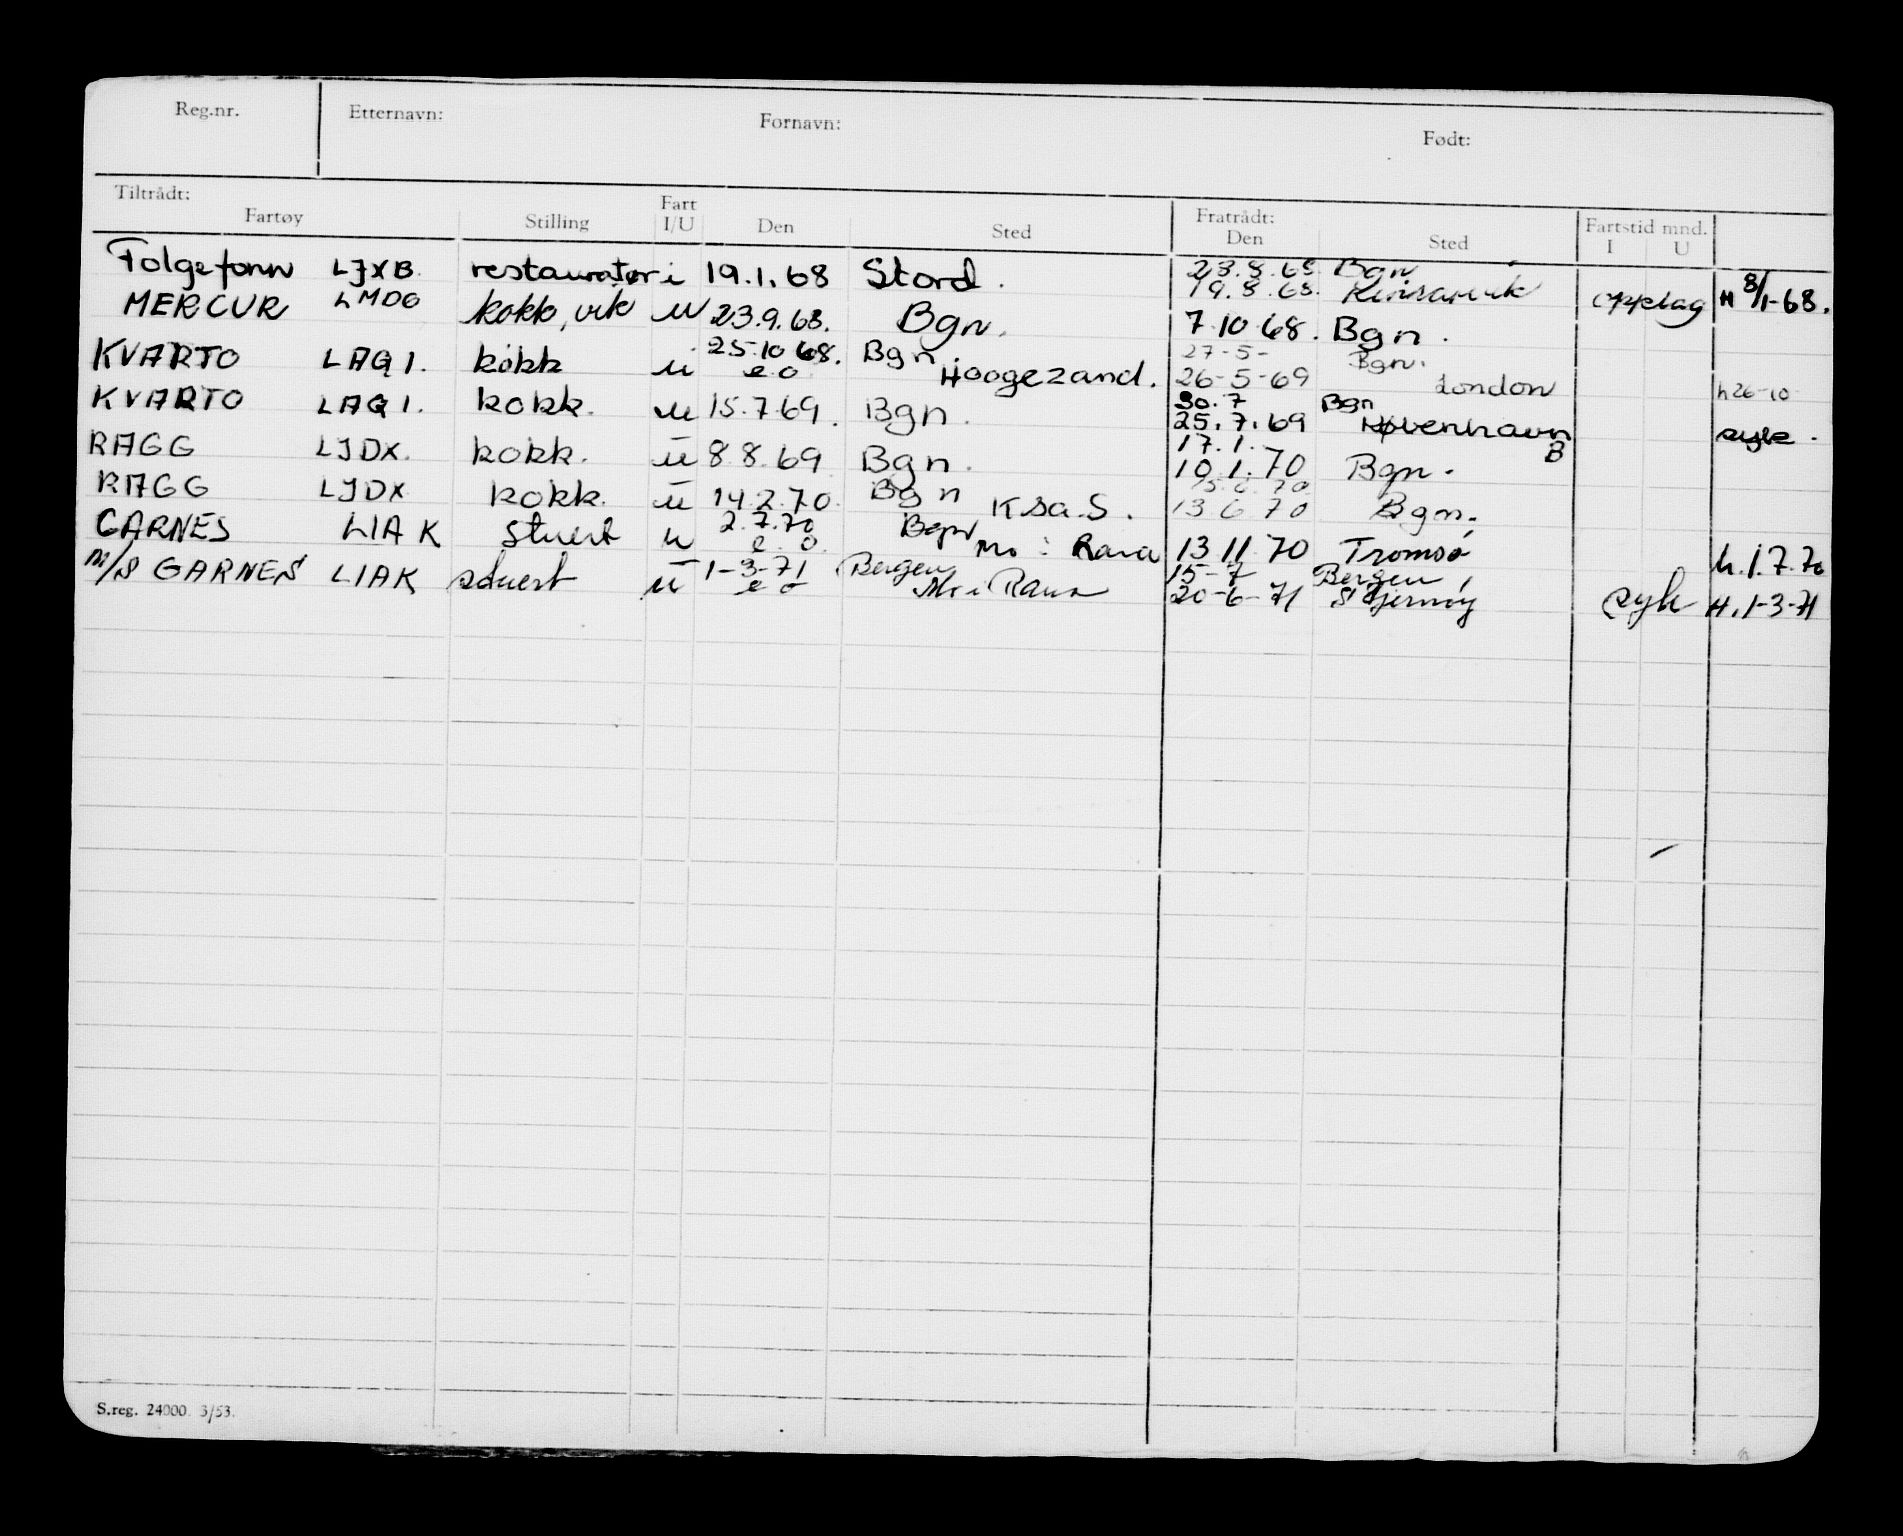 Reg.nr. Etternavn: Fornavn: Født:
Tiltrådt: Fratrådt: Fartstid mnd.
Fartøy Stilling Fart I/U Den Sted Den Sted I U
Folgefonn LJXB. restauratør i 19.1.68 Stord. 23.8.68 Bgn
19.8.68. Kinsarvik opplag H 8/1-68.
MERCUR LMDG kokk, vik u 23.9.68. Bgn. 7.10.68. Bgn.
KVARTO LAQI. kokk u 25.10.68. Bgn 27-5- Bgn.
e.o. Hoogezand. 26-5-69 London h26-10
KVARTO LAQI. kokk. u 15.7.69. Bgn. 30.7 Bgn
25.7.69 København syk.
RAGG LJDX. kokk. u 8.8.69 Bgn. 17.1. B
10.1.70 Bgn.
RAGG LJDX kokk. u 14.2.70. Bgn Ksa.S. 15.6.70
13.6.70 Bgn.
GARNES LIAK Stuert u 2.7.70 Bgn
e.o. Mo i Rana 13.11.70 Tromsø h.1.7.70
M/S GARNES LIAK stuert u 1-3-71 Bergen 15-7 Bergen
e o Mo i Rana 20-6-71 syk H.1-3-71
S.reg. 24000. 3/53.